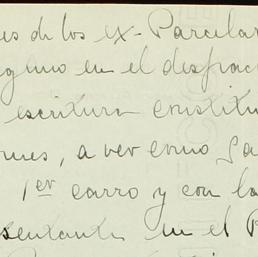 es de los ex-Parcelar
y uno en el despac
escritura constitu
ones, a ver como Sa
1er carro y con la
sentante en el P